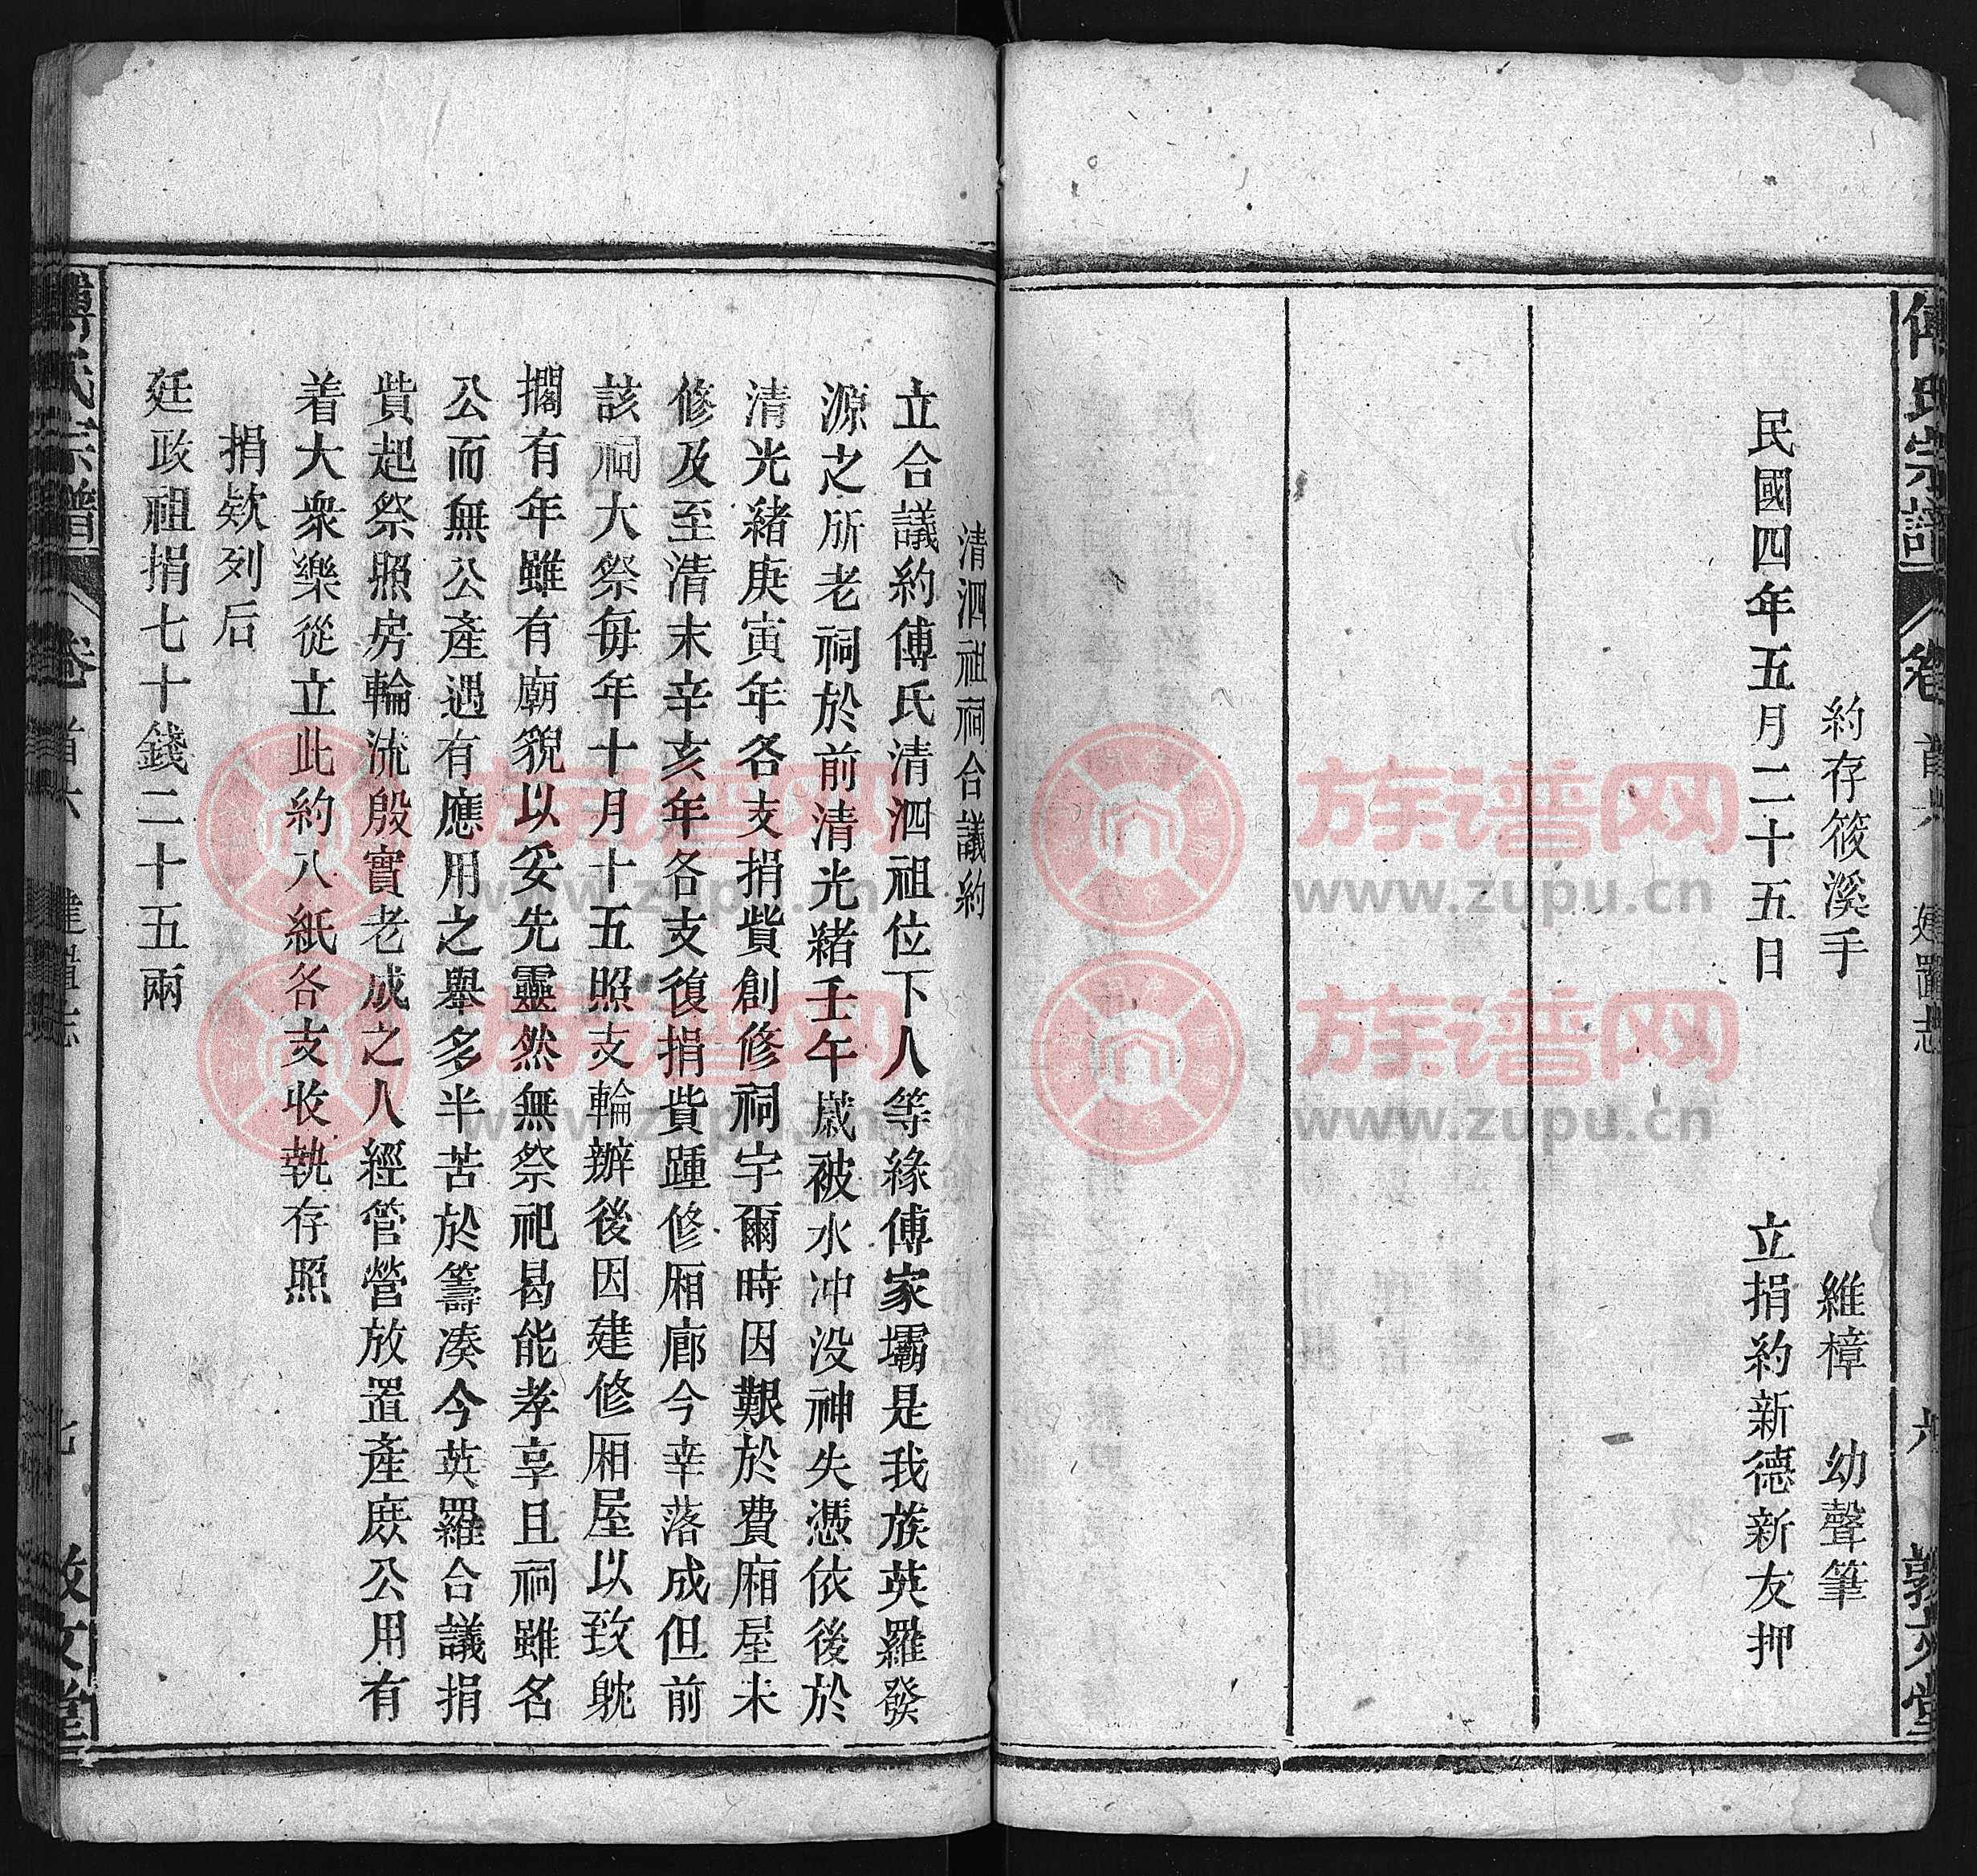 傅氏宗譜 卷首六 建置志 六 敦文堂
約存筱溪手 維樟 幼聲筆
民國四年五月二十五日 立捐約新德新友押
清泗祖祠合議約
立合議約傅氏清泗祖位下人等緣傅家壩是我族英羅發
源之所老祠於前清光緒壬午歲被水冲没神失憑依後於
清光緒庚寅年各支捐貲創修祠宇爾時因艱於費廂屋未
修及至清末辛亥年各支復捐費踵修廂廊今幸落成但前
該祠大祭每年十月十五照支輪辦後因建修厢屋以致躭
擱有年雖有廟貌以妥先靈然無祭祀曷能孝享且祠雖名
公而無公產遇有應用之舉多半苦於籌凑今英羅合議捐
貲起祭照房輪流殷實老成之人經管營放置產庶公用有
着大衆樂從立此約八紙各支收執存照
捐欵列后
廷政祖捐七十錢二十五兩
傅氏宗譜 卷首六 建置志 七 敦文堂
族谱网
www.zupu.cn
族谱网
www.zupu.cn
族谱网
www.zupu.cn
族谱网
www.zupu.cn